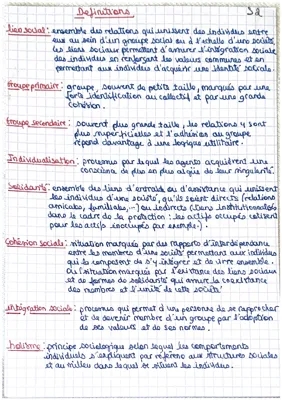 Definitions
lien social : ensemble des relations qui unissent des individus entre
eux au sein d'un groupe social ou à l'échelle d'une société.
les liens sociaux permettent d'assurer l'intégration sociale
des individus en renforçant les valeurs communes et en
permettant aux individus d'acquérir une identité sociale.
groupe primaire : groupe, souvent de petite taille, marqués par une
forte identification au collectif et par une grande
cohésion.
groupe secondaire : souvent plus grande taille, les relations y sont
plus superficielles et l'adhésion au groupe
répond davantage à une logique utilitaire.
Individualisation : processus par lequel les agents acquièrent une
conscience de plus en plus aigüe de leur singularité.
Solidarité : ensemble des liens d'entraide ou d'assistance qui unissent
les individus d'une société, qu'ils soient directs (relations
amicales, familiales, ...) ou indirects (liens institutionnalisés
dans le cadre de la protection : les actifs occupés cotisent
pour les actifs inoccupés par exemple).
Cohésion sociale : situation marquée par des rapports d'interdépendance
entre les membres d'une société permettant aux individus
qui la composent de s'y intégrer et de vivre ensemble.
ou situation marquée par l'existence des liens sociaux
et de formes de solidarité qui assure la coexistence
des membres et l'unité de cette société
intégration sociale : processus qui permet d'une personne de se rapprocher
et de devenir membre d'un groupe par l'adoption
de ses valeurs et de ses normes.
holisme : principe sociologique selon lequel les comportements
individuels s'expliquent par référence aux structures sociales
et au milieu dans lequel se situent les individus.